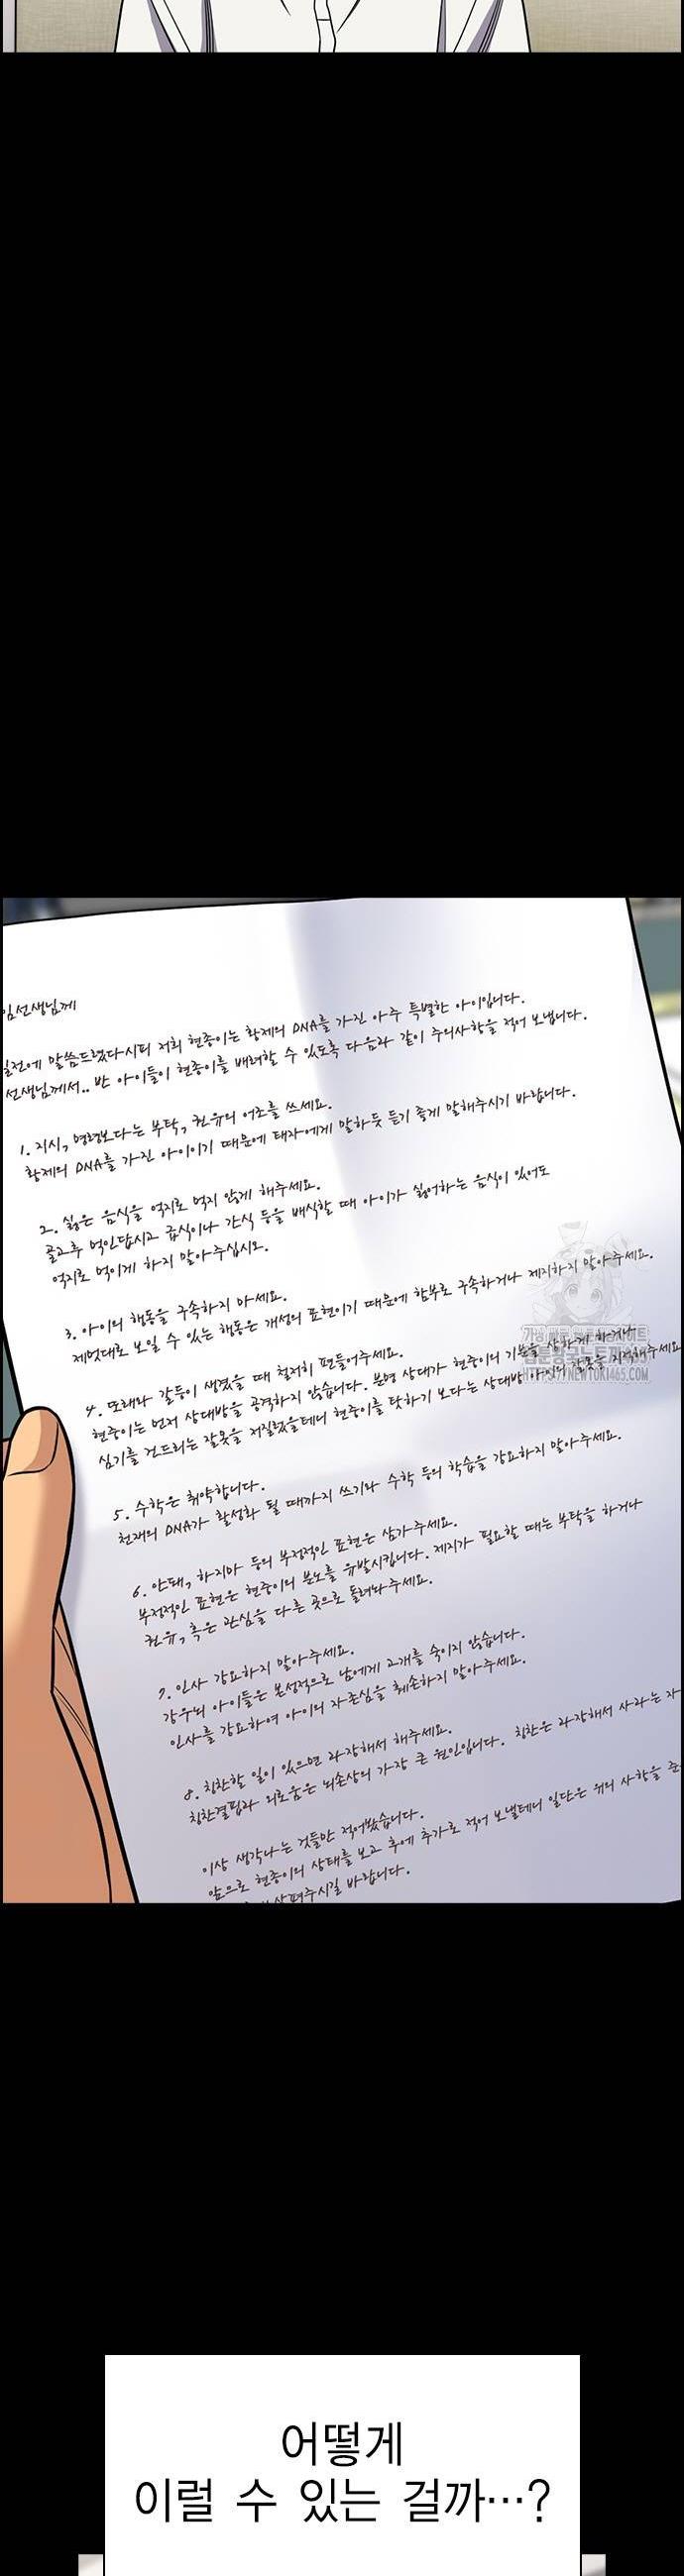 임선생님께
일전에 말씀드렸다시피 저희 현종이는 황제의 DNA를 가진 아주 특별한 아이입니다.
선생님께서.. 반 아이들이 현종이를 배려할 수 있도록 다음과 같이 주의사항을 적어 보냅니다.
1. 지시, 명령보다는 부탁, 권유의 어조를 쓰세요.
황제의 DNA를 가진 아이이기 때문에 태자에게 말하듯 듣기 좋게 말해주시기 바랍니다.
2. 싫은 음식을 억지로 먹지 않게 해주세요.
골고루 먹인답시고 급식이나 간식 등을 배식할 때 아이가 싫어하는 음식이 있어도
억지로 먹이게 하지 말아주십시오.
3. 아이의 행동을 구속하지 마세요.
제멋대로 보일 수 있는 행동은 개성의 표현이기 때문에 함부로 구속하거나 제지하지 말아주세요.
4. 또래와 갈등이 생겼을 때 철저히 편들어주세요.
현종이는 먼저 상대방을 공격하지 않습니다. 분명 상대가 현종이의 기분을 상하게 하거나
심기를 건드리는 잘못을 저질렀을테니 현종이를 탓하기 보다는 상대방 아이의 잘못을 지적해주세요
5. 수학은 취약합니다.
천재의 DNA가 활성화 될 때까지 쓰기와 수학 등의 학습을 강요하지 말아주세요.
6. 안돼, 하지마 등의 부정적인 표현은 삼가주세요.
부정적인 표현은 현종이의 분노를 유발시킵니다. 제지가 필요할 때는 부탁을 하거나
권유, 혹은 관심을 다른 곳으로 돌려놔주세요.
7. 인사 강요하지 말아주세요.
강우뇌 아이들은 본성적으로 남에게 고개를 숙이지 않습니다.
인사를 강요하여 아이의 자존심을 훼손하지 말아주세요.
8. 칭찬할 일이 있으면 과장해서 해주세요.
칭찬결핍과 외로움은 뇌손상의 가장 큰 원인입니다. 칭찬은 과장해서 사과는 자
이상 생각나는 것들만 적어봤습니다.
앞으로 현종이의 상태를 보고 후에 추가로 적어 보낼테니 일단은 위의 사항을 준
살펴주시길 바랍니다.
어떻게
이럴 수 있는 걸까…?